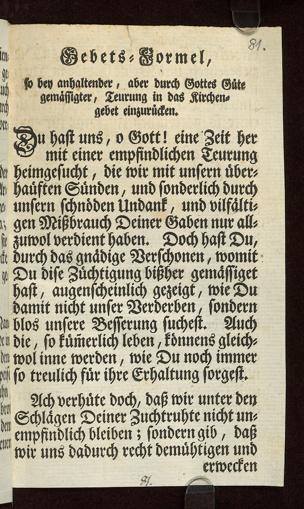 81.
Gebets-Formel,
so bey anhaltender, aber durch Gottes Güte
gemässigter, Teurung in das Kirchen-
gebet einzurücken.
Du hast uns, o Gott! eine Zeit her
mit einer empfindlichen Teurung
heimgesucht, die wir mit unsern über-
haüften Sünden, und sonderlich durch
unsern schnöden Undank, und vilfälti-
gen Mißbrauch Deiner Gaben nur all-
zuwol verdient haben. Doch hast Du,
durch das gnädige Verschonen, womit
Du dise Züchtigung bißher gemässiget
hast, augenscheinlich gezeigt, wie Du
damit nicht unser Verderben, sondern
blos unsere Besserung suchest. Auch
die, so kümerlich leben, können gleich-
wol inne werden, wie Du noch immer
so treulich für ihre Erhaltung sorgest.
Ach verhüte doch, daß wir unter den
Schlägen Deiner Zuchtruhte nicht un-
empfindlich bleiben; sondern gib, daß
wir uns dadurch recht demühtigen und
erwecken
81.